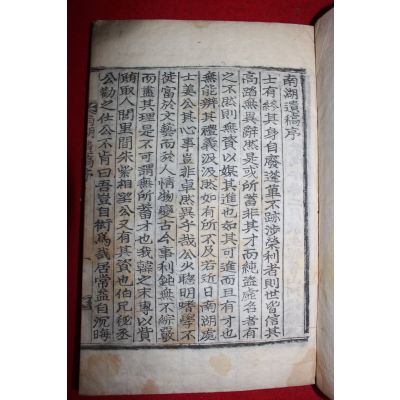 南湖遺稿序
士有終其身自廢蓬蓽不跡涉榮利者則世皆信其
高蹈無異辭然是或所蓄非其才而純盜虛名者有
之不然則無資以媒其進也如其可進而且有才也
無能辨其禮義汲汲然如有所不及若近日南湖處
士姜公其心事豈非卓然異乎哉公少聰明嗜學不
徒富於文藝而於人情物變古今事利鈍無不綜覈
而盡其理是不可謂無所蓄才也我韓之末專以貨
賄取人閭里間朱紫相望公又有其資也伯兄稷丞
公勸之仕公不肯曰吾豈自衒爲哉居常益自沉晦
南湖遺稿序